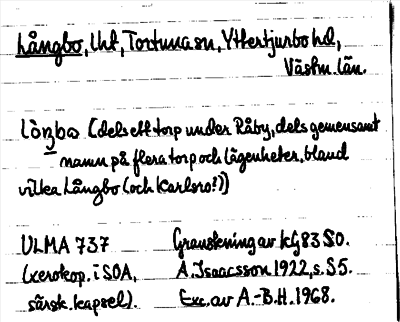 Långbo, Uht, Tortuna sn, Yttertjurbo hd,
Västm. län.
lòŋba (dels ett torp under Råby, dels gemensamt
namn på flera torp och lägenheter, bland
vilka Långbo (och Karlsro?))
ULMA 737 Granskning av KG 83 SO.
(xerokop. i SOA, A. Isaacsson 1922, s. 55.
särsk. kapsel). Exc. av A.-B.H. 1968.